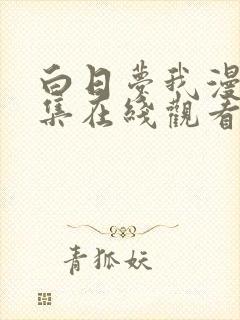 白日夢我漫
集在綫觀看
青狐妖